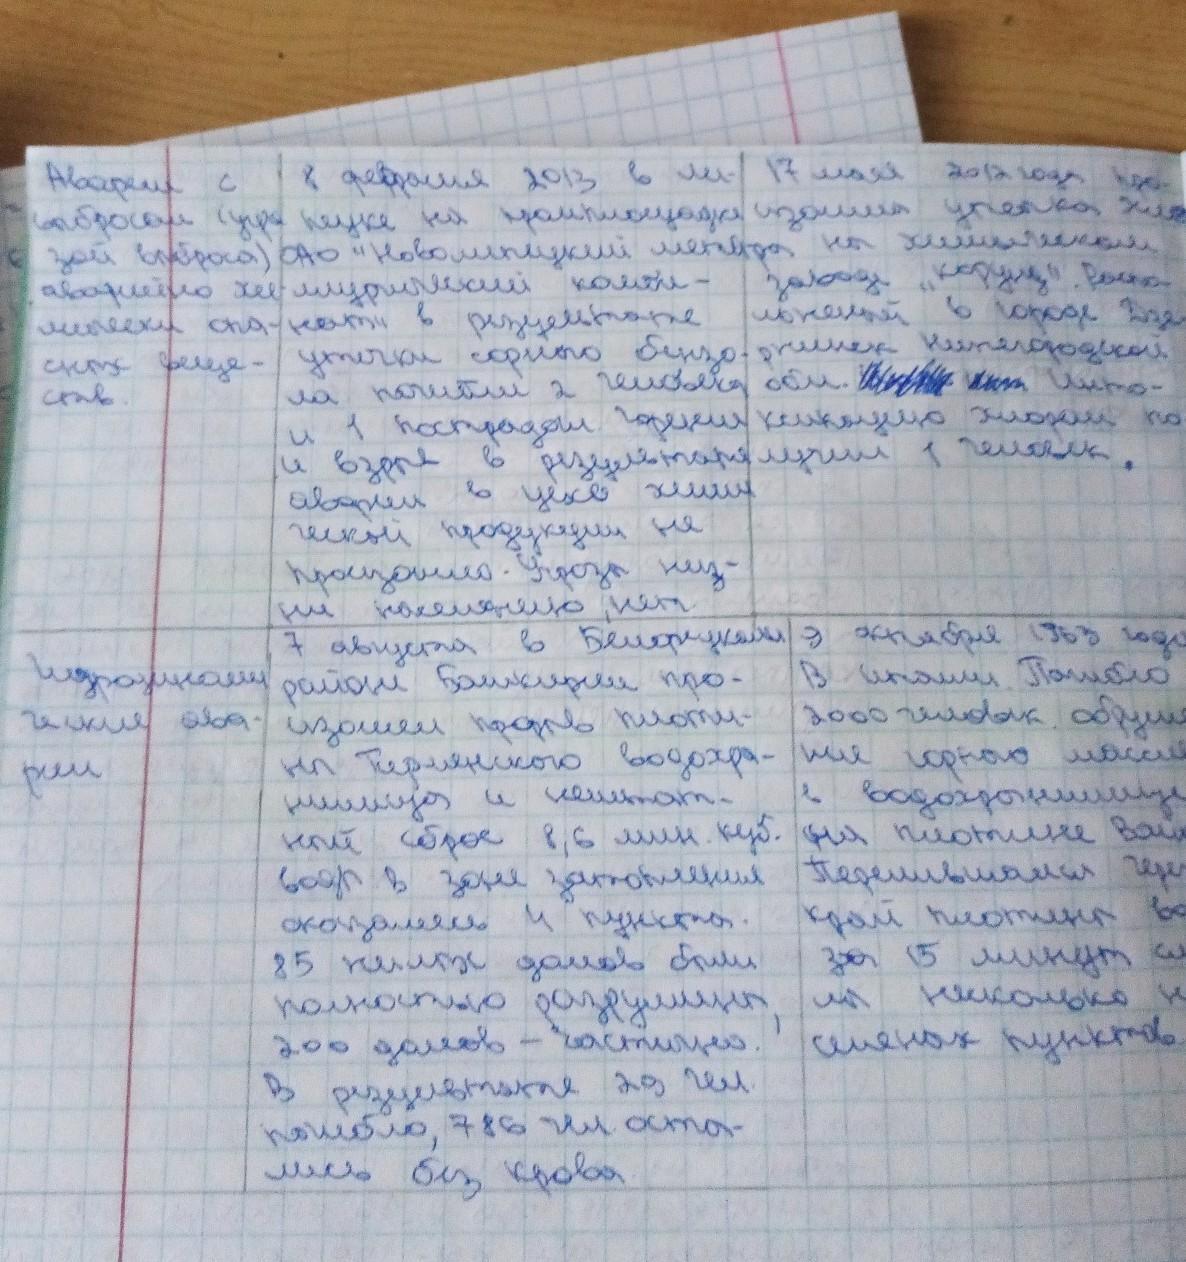 Аварии с
выбросом (угро
зой выброса)
аварийно хи
мически опа-
сных веще-
ств.
8 февраля 2013 в ли-
пецке на промплощадке
ОАО "Новолипецкий метал
лургический комби-
нат" в результате
утечки сорного бензо-
ла погибли 2 человека
и 1 пострадал горения
и взрыв в результате
аварии в цехе хими
ческой продукции не
произошло. Угрозы жиз-
ни населению нет.
17 мая 2012 года про-
изошла утечка хло
ра на химическом
заводе "корунд". Распо-
ложеный в городе Дзе
ржинск нижегородской
обл. инто-
ксикацию хлором по
лучил 1 человек.
Гидродинами
ческие ава-
рии
7 августа в Белорецком
районе Башкирии про-
изошел прорыв плоти-
ны Тирлянского водохра-
нилища и нештат-
ный сброс 8,6 млн. куб.
воды в зоне затопления
оказались 4 пункта.
85 жилых домов были
полностью разрушены,
200 домов – частично.
В результате 29 чел.
погибло, 786 чел. оста-
лись без крова.
9 октября 1963 года
В италии. Погибло
2000 человек. обруше
ние горного масси
в водохранилище
на плотине Вай
Перелившаяся чере
край плотины во
за 15 минут см
ла несколько н
селеных пунктов